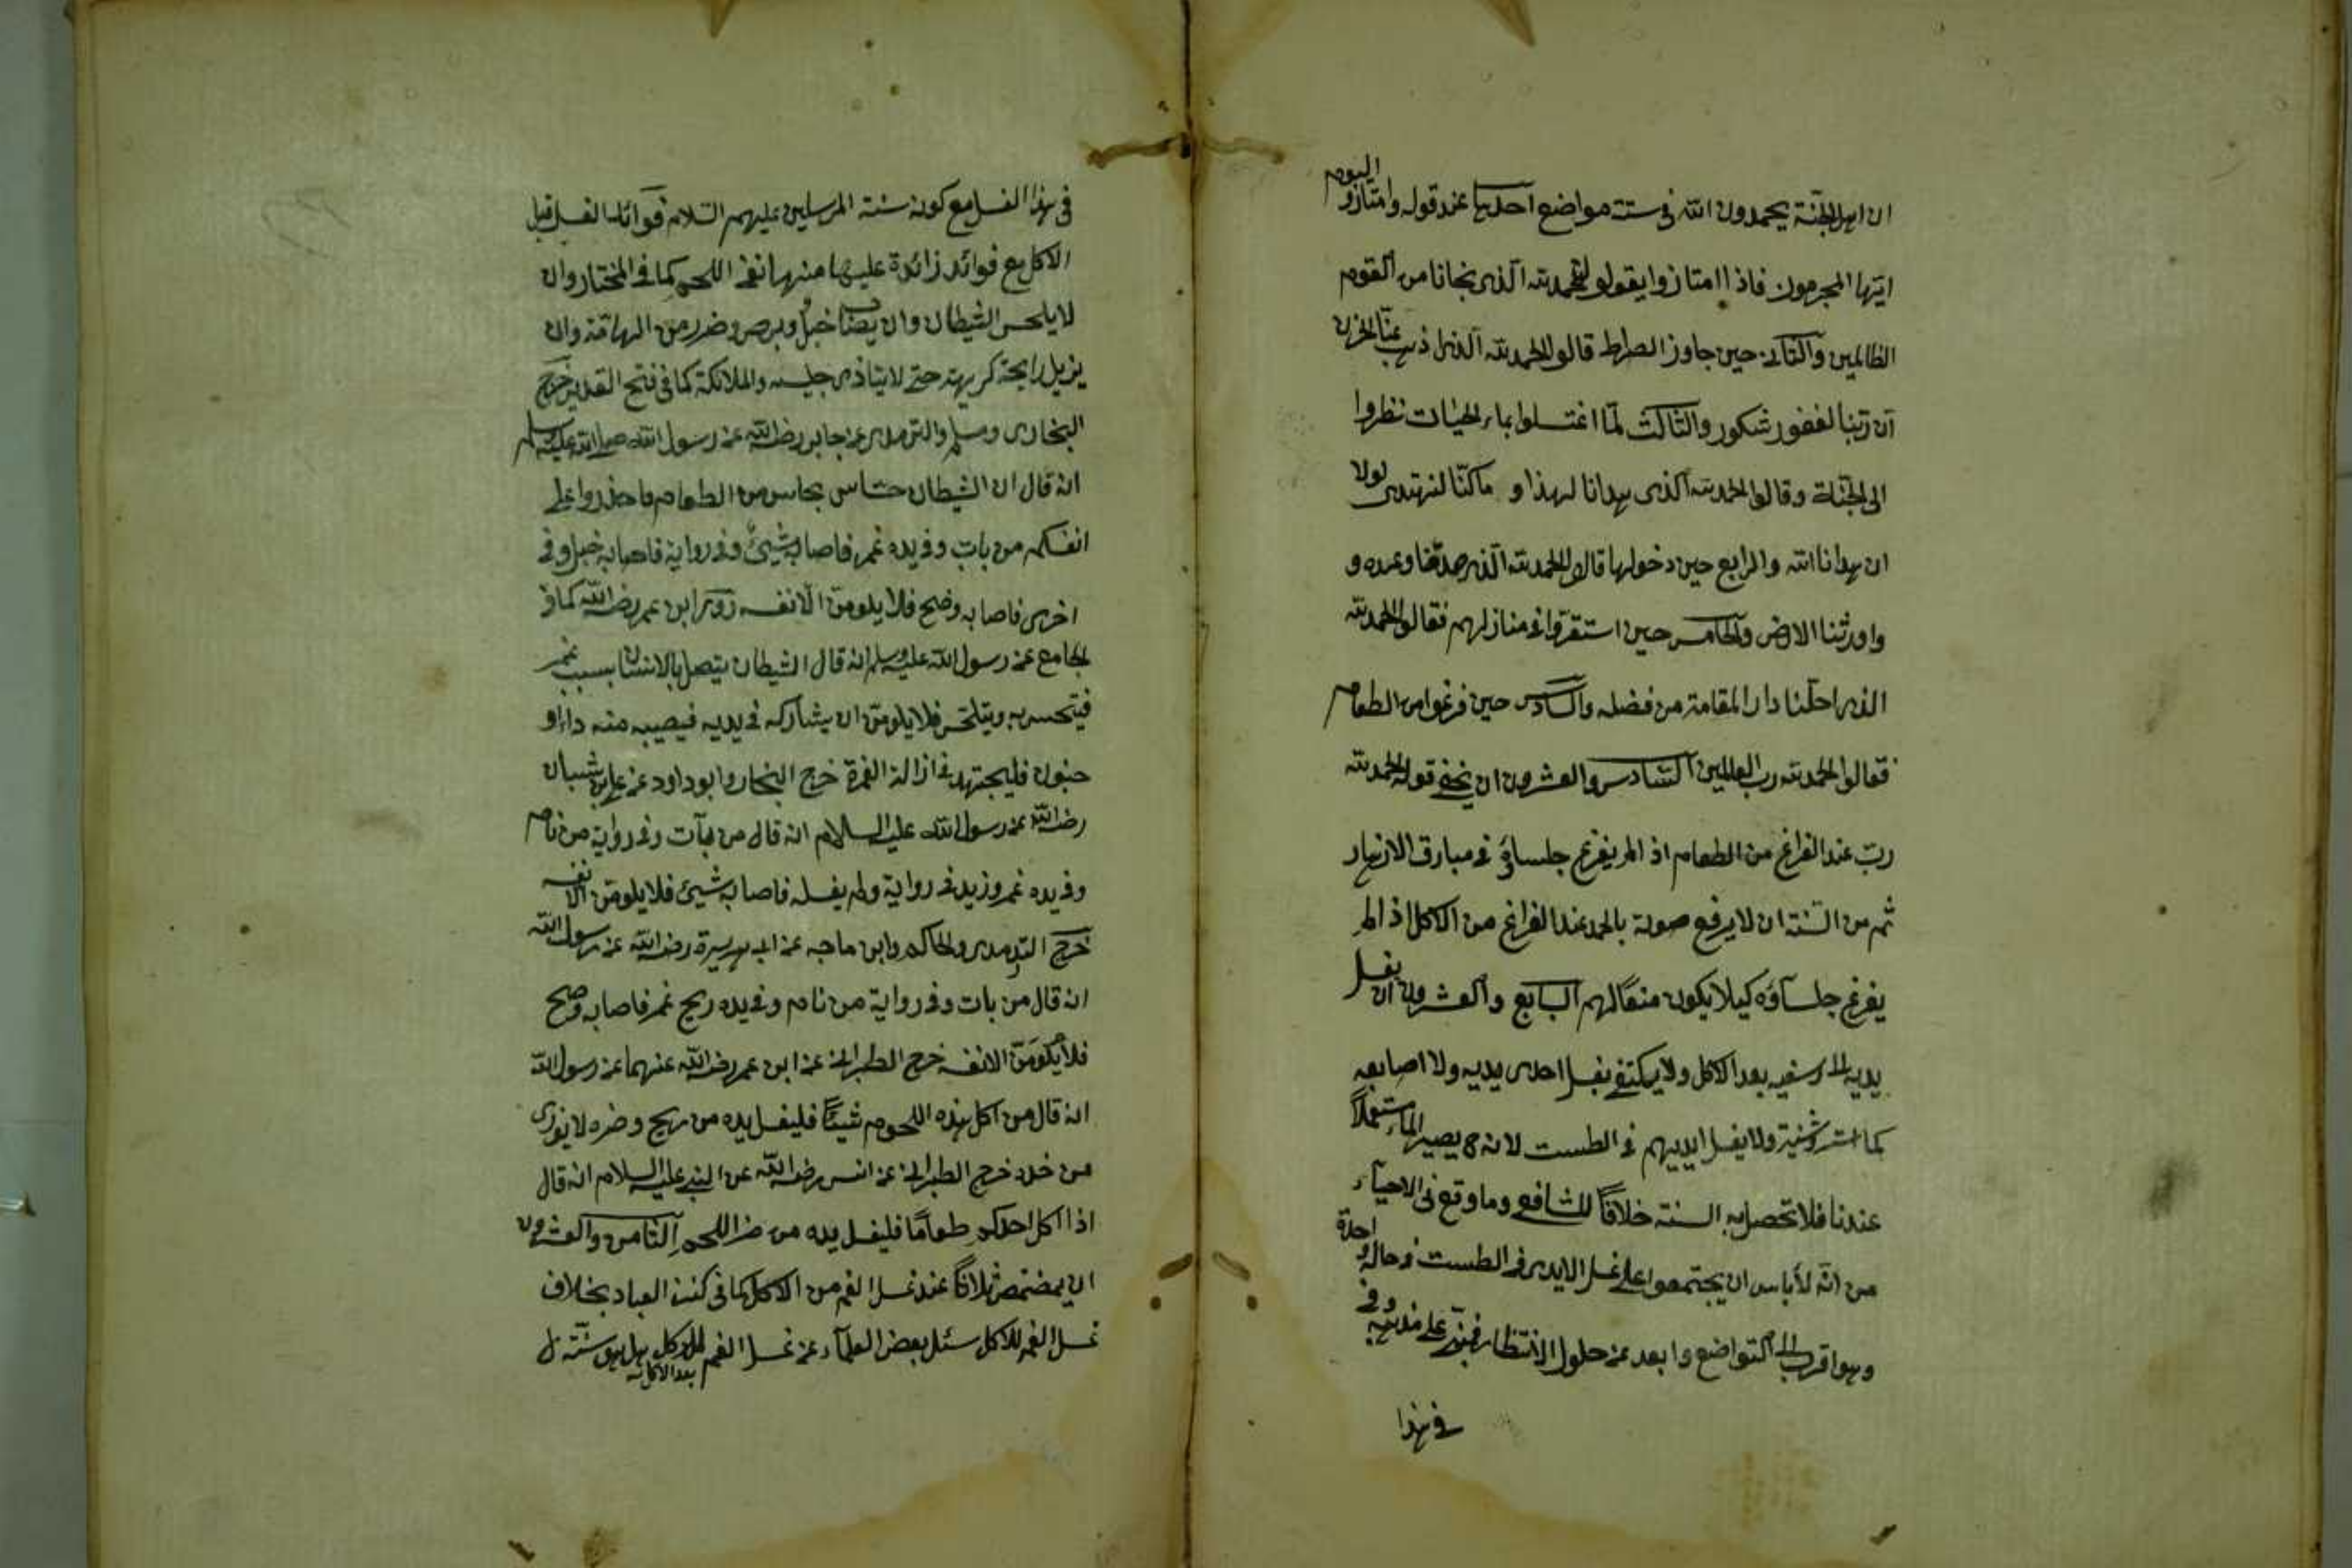 ان اهل الجنة يحمدون الله فى ستة مواضع احدها عند قوله وامتازو اليوم
ايتها المجرمون فاذا امتازوا يقولو الحمد لله الذى نجانا من القوم
الظالمين والثانى حين جاوز الصراط قالو الحمد لله الذى اذهب عنا الحزن
ان ربنا لغفور شكور والثالث لما اغتسلوا بماء الحيات نظروا
الى الجنة وقالوا الحمد لله الذى هدانا لهذا و ماكنا لنهتدى لولا
ان هدانا الله والرابع حين دخولها قالوا الحمد لله الذى صدقنا وعده و
واورثنا الارض والخامس حين استقروا فى منازلهم فقالوا الحمد لله
الذى احلنا دار المقامة من فضله والسادس حين فرغوا من الطعام
فقالوا الحمد لله رب العالمين السادس والعشرون ان يخفى قوله الحمد لله
رب عند الفراغ من الطعام اذ المريفرغ جلساؤ فى مبارق الازهار
ثم من السنة ان لا يرفع صوته بالحمد عند الفراغ من الاكل اذ الم
يفرغ جلساؤه كيلا يكون منعا لهم السابع والعشرون ان يغسل
يديه الى رسغيه بعد الاكل ولا يكتفى بغسل احدى يديه ولا اصابعه
كما ولا يغسل ايديهم فى الطست لانه ح يصير الماء مستعملا
عندنا فلا تحصل به السنة خلافا للشافعى وما وقع فى الاحياء
من انه لا بأس ان يجتمعوا على غسل الايدى فى الطست فى حالة واحدة
وهو اقرب الى التواضع وابعد عن حلول الانتظار على مذهبه وفى
فى هذا
فى هذا الغسل مع كونه سنة المرسلين عليهم السلام فوائد الغسل قبل
الاكل مع فوائد زائدة عليها منها نفى اللحم كما فى المختار وان
لا يلحس الشيطان وان يصنا خبل وبرص وضرر من الهامة وان
يزيل رايحة كريهة حتى لا يتاذى جليسه والملائكة كما فى فتح القدير خرج
البخارى ومسلم والترمدى عن جابر رضى الله عن رسول الله صلى الله عليه وسلم
انه قال ان الشيطان حساس لحاس من الطعام فاحذروا على
انفسكم من بات وفى يده غمر فاصابه شيئ وفى رواية فاصابه خبل وفى
اخرى فاصابه وضح فلا يلومن الا نفسه روى ابن عمر رضى الله كما فى
الجامع عن رسول الله عليه وسلم انه قال الشيطان يتصل بالانسان بسبب غمر
فيتحسس به ويتلحس فلا يلومن ان يشاركه فى يديه فيصيبه منه داء او
جنون فليجتهد فى ازالة الغمرة خرج البخار وابو داود عن على بن شيبان
رضى الله عن رسول الله عليه السلام انه قال من بات وفى رواية من نام
وفى يده غمر وزيد فى رواية ولم يغسله فاصابه شيئ فلا يلومن الا نفسه
خرج الترمدى والحاكم وابن ماجه عن ابى هريرة رضى الله عن رسول الله
انه قال من بات وفى رواية من نام وفى يده ريح غمر فاصابه وضح
فلا يلومن الا نفسه خرج الطبرانى عن ابن عمر رضى الله عنهما عن رسول الله
انه قال من اكل هذه اللحوم شيئا فليغسل يده من ريح وضره لا يوذى
من خرج الطبرانى عن انس رضى الله عن النبى عليه السلام انه قال
اذا اكل احدكم طعاما فليغسل يده من اللحم الثامن والعشرون
ان يمضمض ثلاثا عند غسل الفم من الاكل كما فى كنز العباد بخلاف
غسل الفم للاكل سئل بعض العلماء عن غسل الفم للاكل هل هو سنة
بعد الاكل